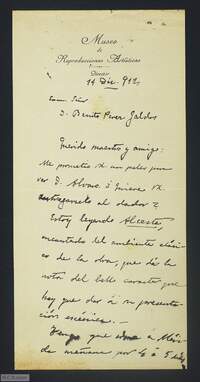 Museo
de
Reproducciones Artísticas
Director
14 Dic. 912
Exmo Señor
D. Benito Perez Galdos
Querido maestro y amigo:
Me prometió V. un palco para
ver
al dador
Estoy leyendo Alceste,
encantado del ambiente clásico
de la obra, que dá la
nota del bello caracter que
hay que dar á su presentación
escénica.
Tengo que
mañana por 4 ó 5 dias